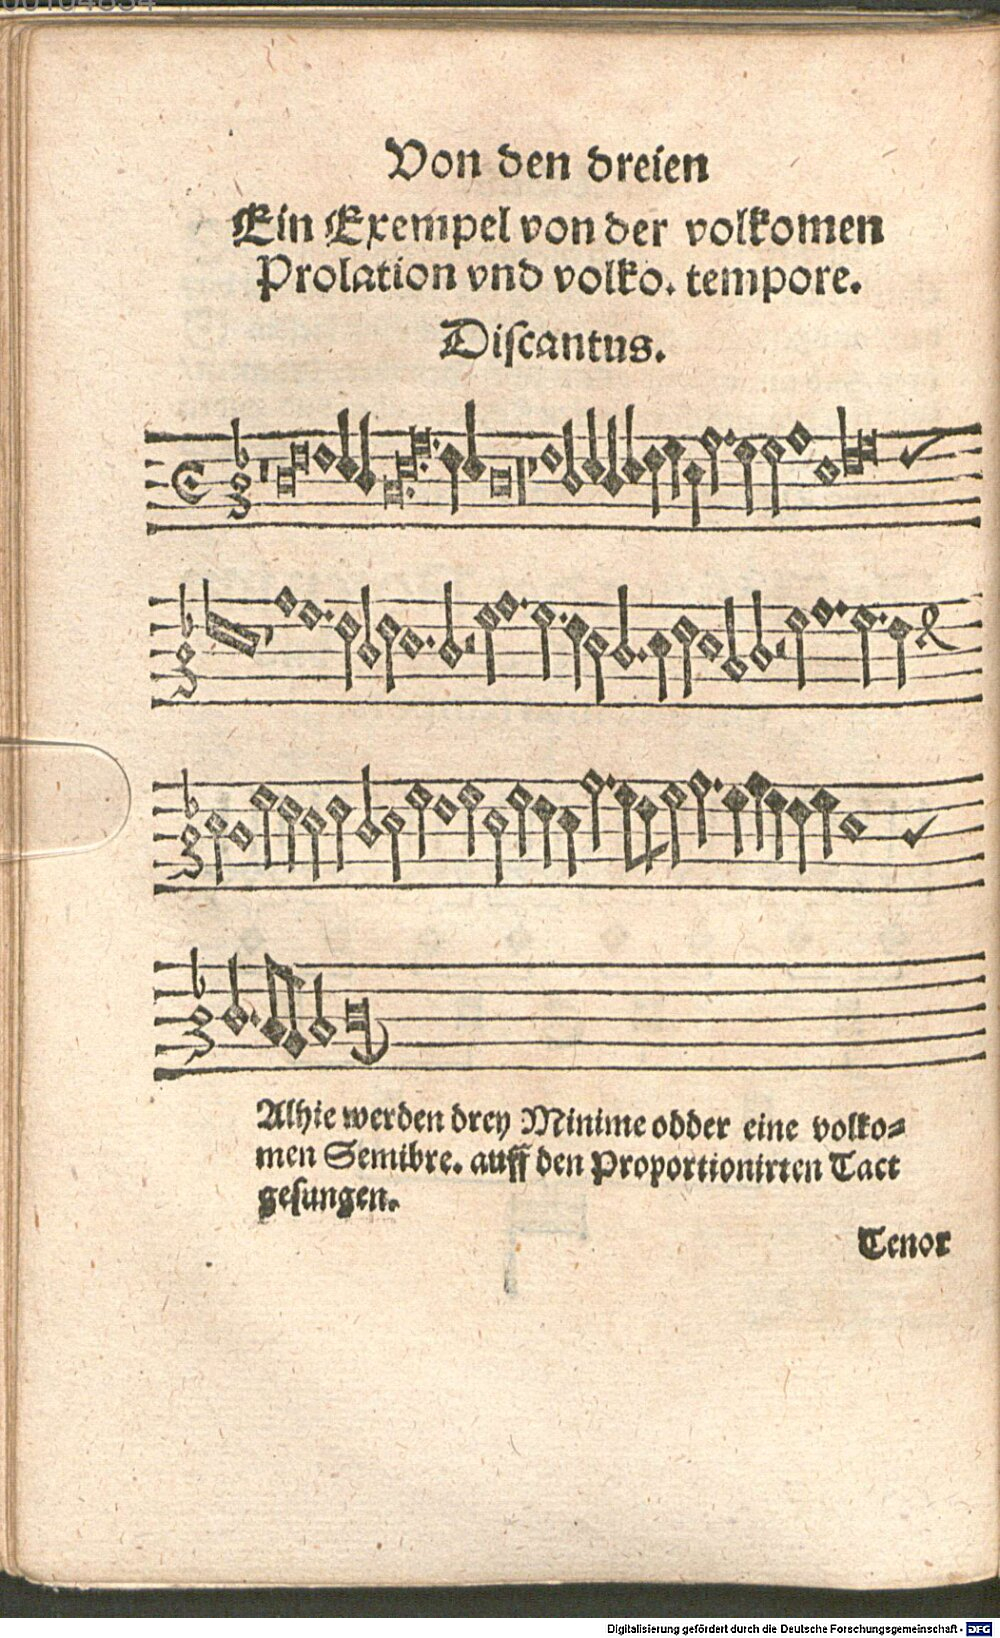 Von den dreien
Ein Exempel von der volkomen
Prolation vnd volko. tempore.
Discantus.
Alhie werden drey Minime odder eine volko⸗
men Semibre. auff den Proportionirten Tact
gesungen.
Tenor
Digitalisierung gefördert durch die Deutsche Forschungsgemeinschaft - DFG